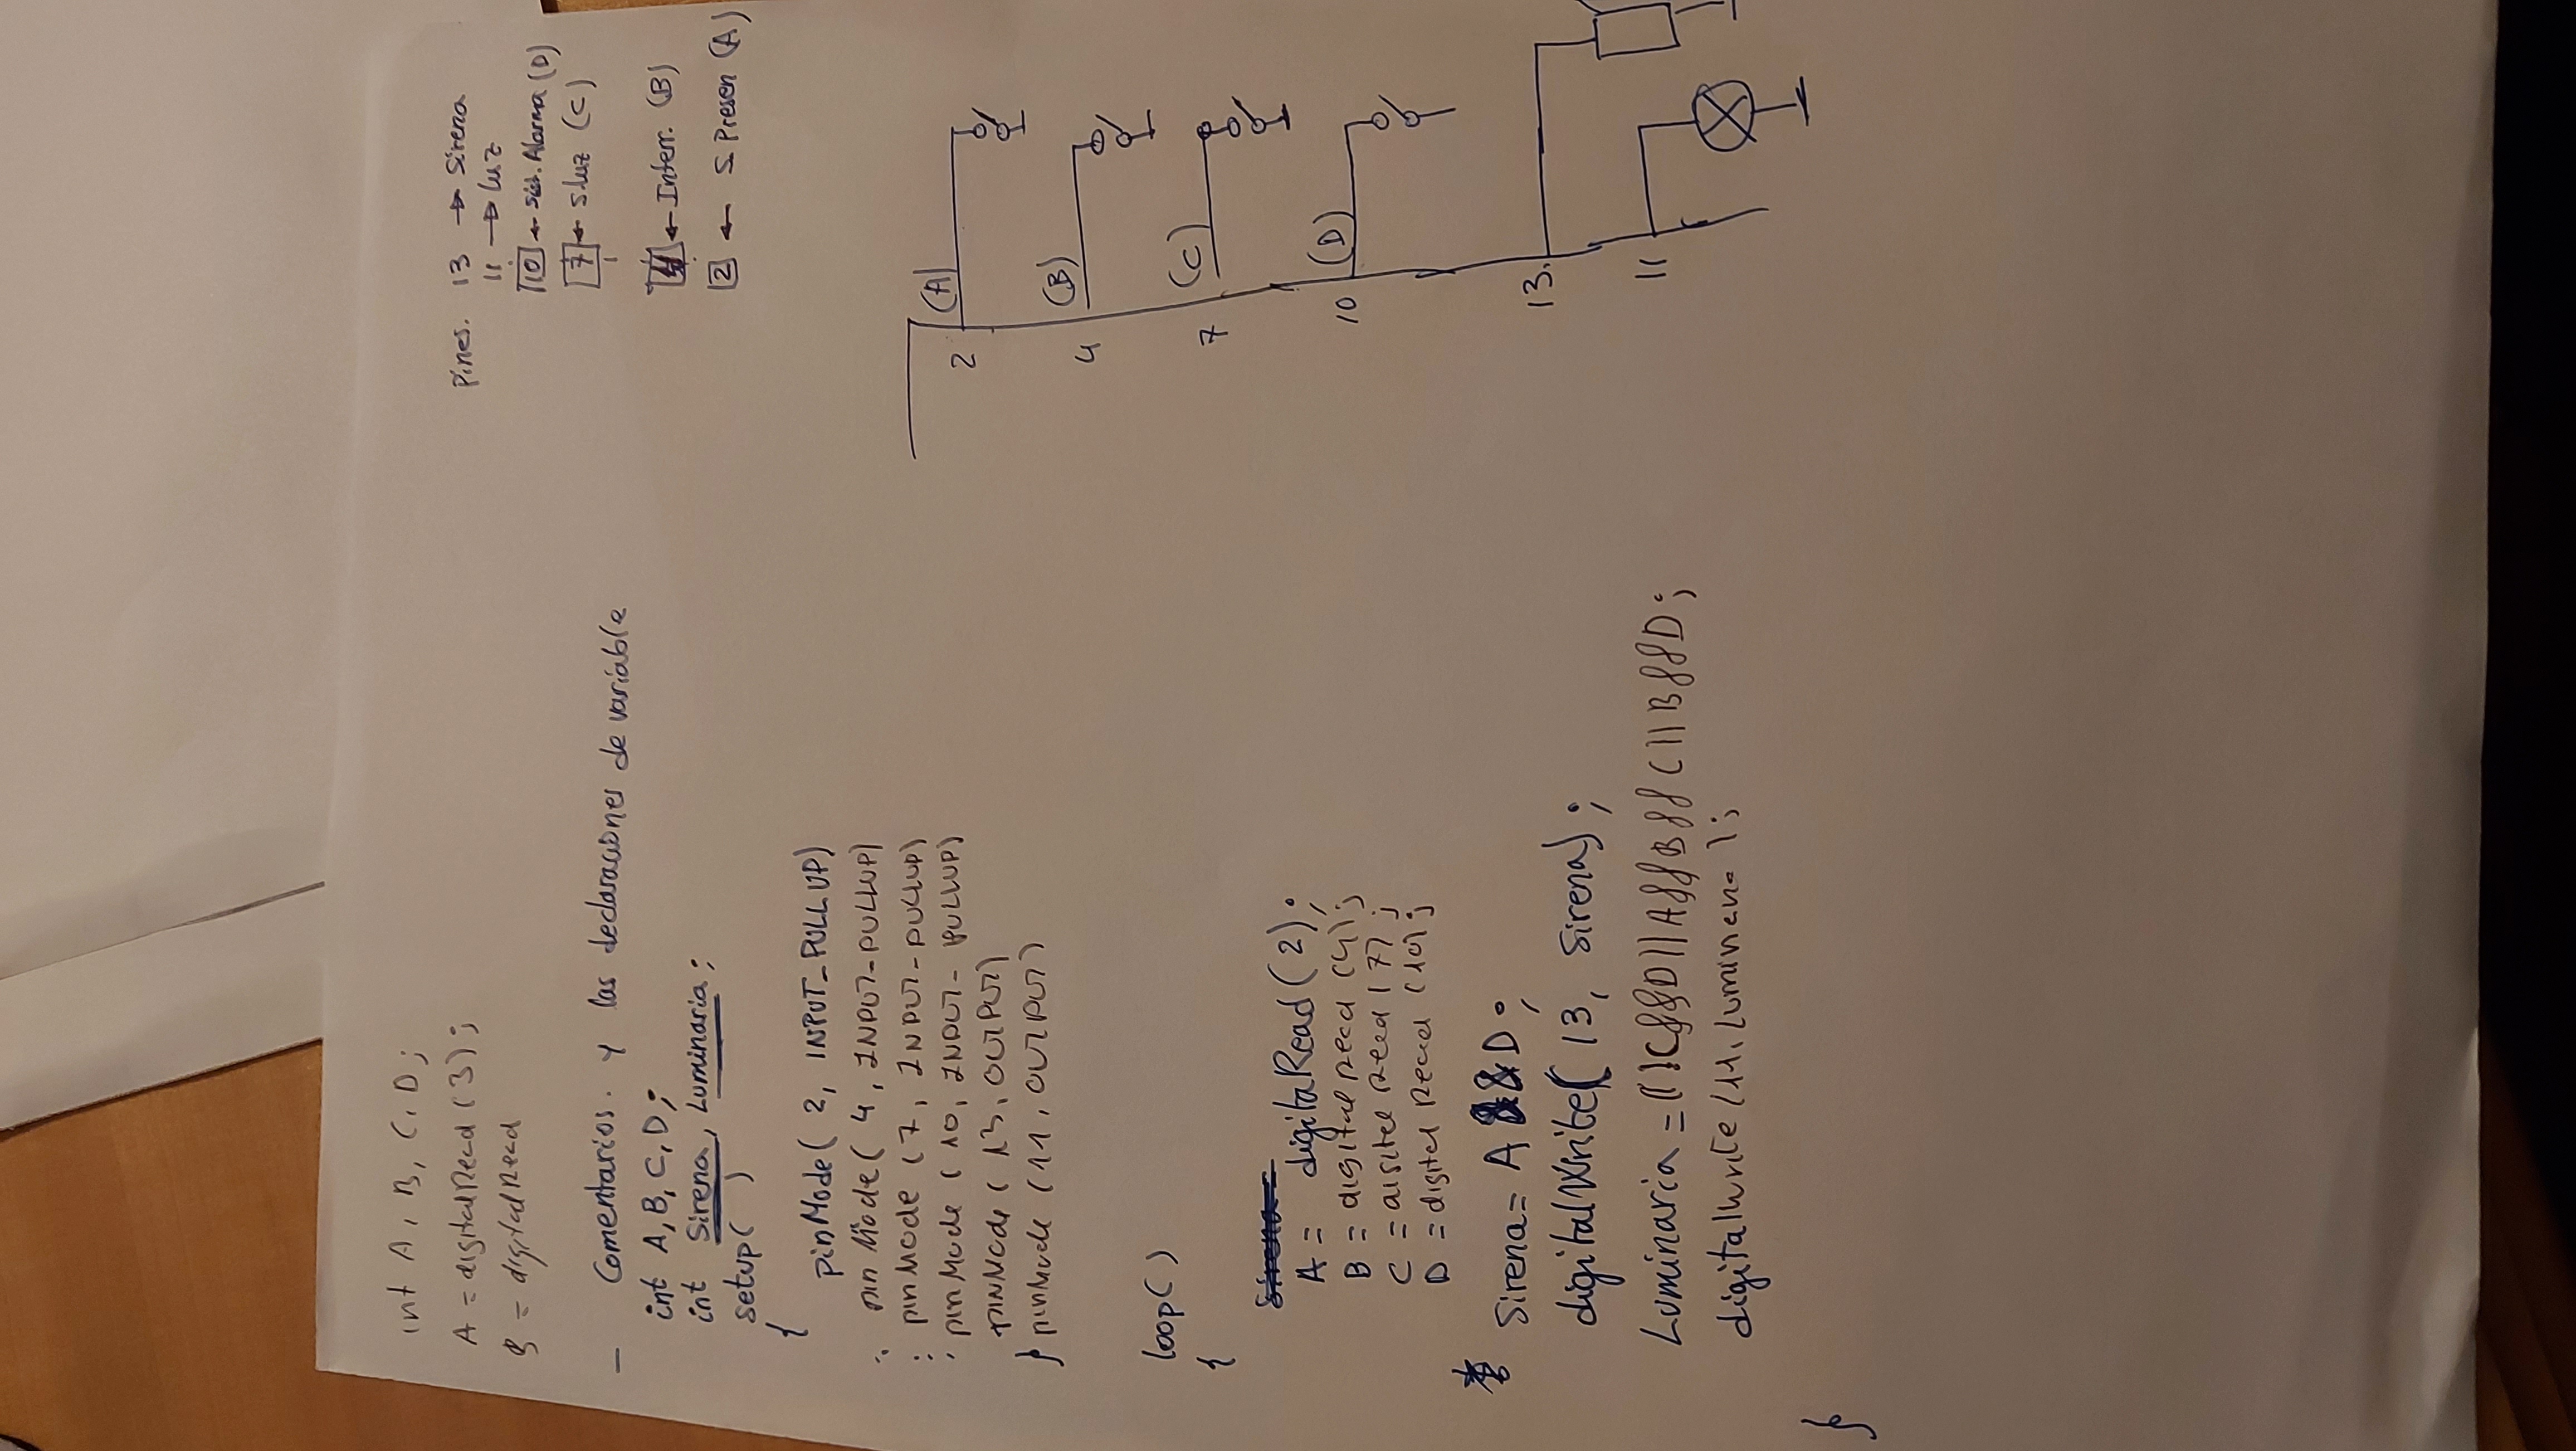 int A, B, C, D;
A = digitalRead (3);
B = digitalRead
— Comentarios. y las declaraciones de variable
int A, B, C, D;
int Sirena, Luminaria;
setup( )
{
pinMode( 2, INPUT_PULLUP)
pinMode ( 4, INPUT-PULLUP)
pinMode ( 7, INPUT-PULLUP)
pinMode ( 10, INPUT-PULLUP)
pinMode ( 13, OUTPUT)
} pinMode (11, OUTPUT)
loop( )
{
A = digitaRead( 2);
B = digitalRead (4);
C = digital Read (7);
D = digital Read (10);
Sirena = A && D;
digitalWrite( 13, Sirena);
Luminaria = (!C&&D)||A&&B&&C||B&&D;
digitalWrite (11, Luminaria);
}
Pines. 13 → Sirena
11 → luz
10 ← Sist. Alarma (D)
7 ← S luz (C)
4 ← Interr. (B)
2 ← S Presen (A)
2 (A)
4 (B)
7 (C)
10 (D)
13.
11